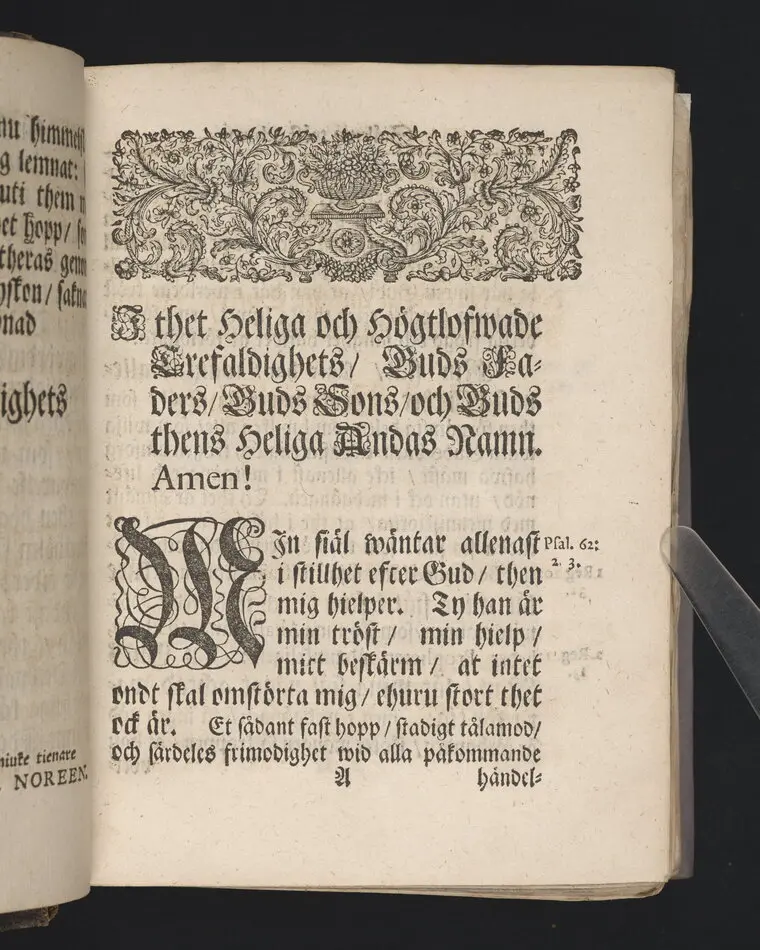 nu himmel
g lemnat:
uti them
et hopp/
theras
yskon/
nad
ighets
miuke tienare
NOREEN.
I thet Heliga och Högtlofwade
Trefaldighets/ Guds Fa-
ders/ Guds Sons/och Guds
thens Heliga Andas Namn.
Amen!
MIn siäl wäntar allenast
i stillhet efter Gud/ then
mig hielper. Ty han är
min tröst/ min hielp/
mitt beskärm/ at intet
ondt skal omstörta mig/ ehuru stort thet
ock är. Et sådant fast hopp/ stadigt tålamod/
och särdeles frimodighet wid alla påkommande
A händel-
Psal. 62:
2. 3.